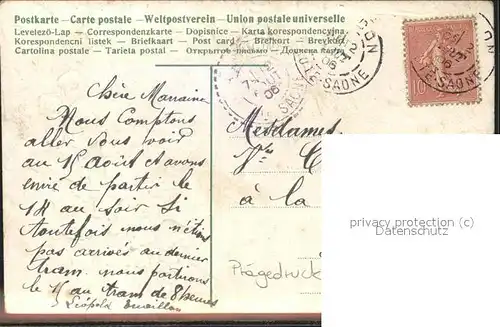 Postkarte - Carte postale - Weltpostverein - Union postale universelle
Levelező-Lap — Correspondenzkarte — Dopisnice — Karta korespondencyjna
Korespondenční lístek — Briefkaart — Post card — Brefkort — Brevkort
Cartolina postale — Tarjeta postal — Открытое письмо — Дописна карта
06
SAONE
10
Chère Marraine
Nous Comptons
aller vous voir
au 15 Août et avons
envie de partir le
14 au soir Si
toutefois nous n'étions
pas arrivés au dernier
tram. nous partirions
le 15 au tram de 8 heures
Léopold
Mesdames
à la
privacy protection (c)
Datenschutz
Prägedruck